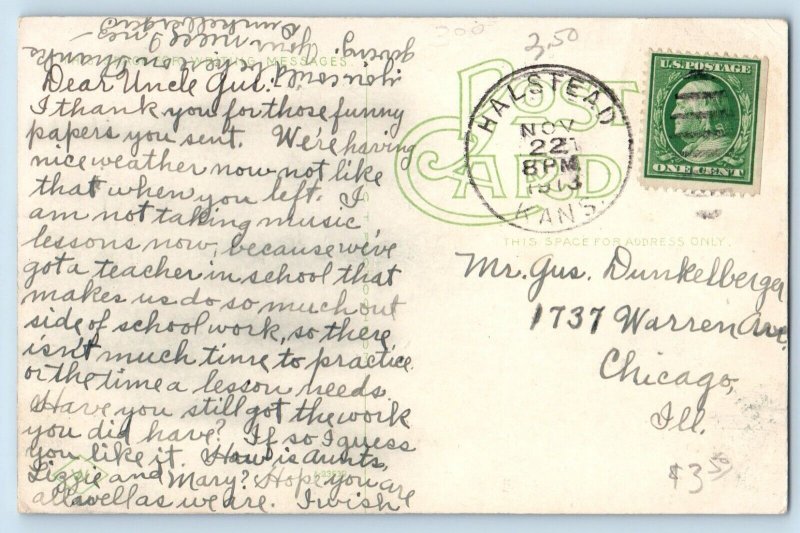 Dear Uncle Gus:
I thank you for those funny
papers you sent. We're having
nice weather now not like
that when you left. I
am not taking music
lessons now, because we've
got a teacher in school that
makes us do so much out
side of school work, so there
isn't much time to practice
or the time a lesson needs.
Have you still got the work
you did have? If so I guess
you like it. How is aunts,
Lizzie and Mary? Hope you are
all well as we are. I wish
you could be here Thanks
giving. Your niece
Dunkelberger
3.50
POST
CARD
HALSTEAD
NOV
22
8 PM
1913
KANS.
U.S. POSTAGE
ONE CENT
THIS SPACE FOR ADDRESS ONLY.
Mr. Gus. Dunkelberger
1737 Warren Ave.
Chicago,
Ill.
$3.50